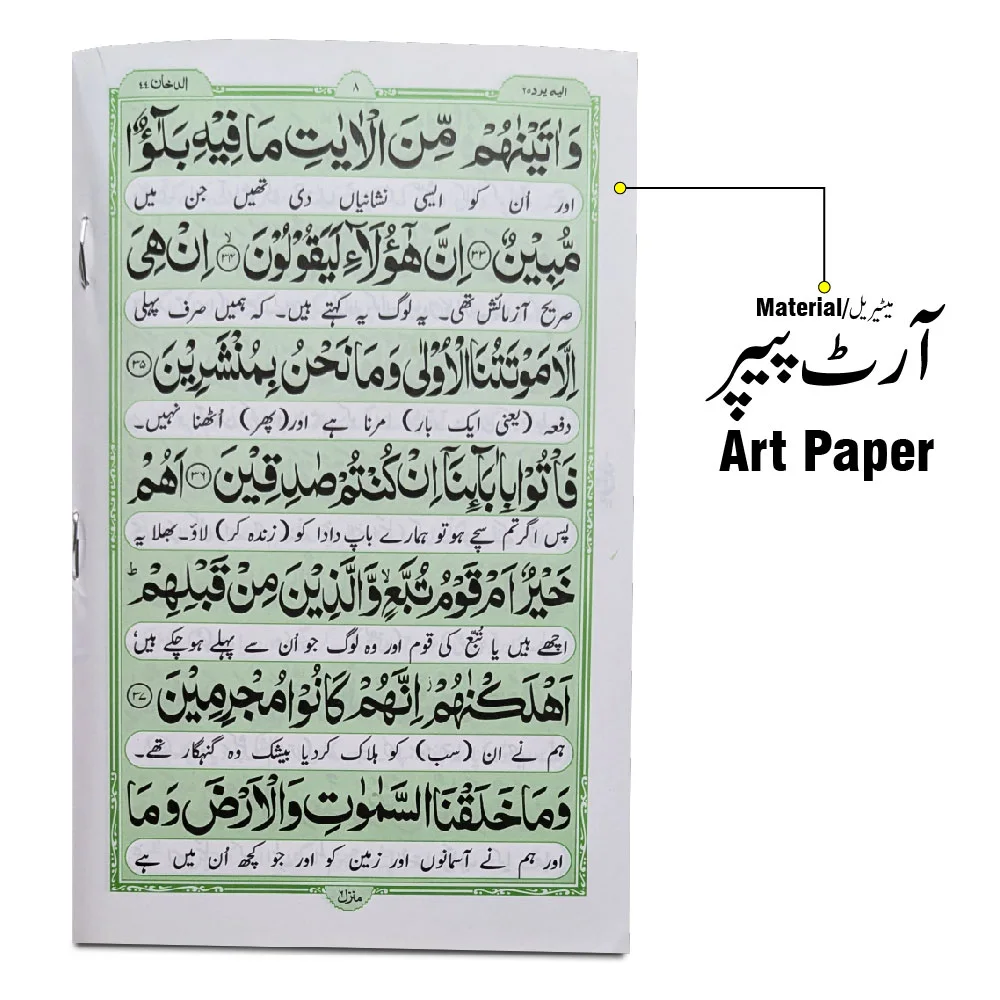 الیہ یرد ۲۵
۸
الدخان ۴۴
وَ اٰتَيْنٰهُمْ مِّنَ الْاٰيٰتِ مَا فِيْهِ بَلٰٓؤٌا
اور اُن کو ایسی نشانیاں دی تھیں جن میں
مُّبِيْنٌ ﴿۳۳﴾ اِنَّ هٰٓؤُلَآءِ لَيَقُوْلُوْنَ ﴿۳۴﴾ۙ اِنْ هِىَ
صریح آزمائش تھی۔ یہ لوگ یہ کہتے ہیں۔ کہ ہمیں صرف پہلی
اِلَّا مَوْتَتُنَا الْاُوْلٰى وَ مَا نَحْنُ بِمُنْشَرِيْنَ ﴿۳۵﴾
دفعہ (یعنی ایک بار) مرنا ہے اور (پھر) اُٹھنا نہیں۔
فَاْتُوْا بِاٰبَآئِنَآ اِنْ كُنْتُمْ صٰدِقِيْنَ ﴿۳۶﴾ اَهُمْ
پس اگر تم سچے ہو تو ہمارے باپ دادا کو (زندہ کر) لاؤ۔ بھلا یہ
خَيْرٌ اَمْ قَوْمُ تُبَّعٍ ۙ وَّ الَّذِيْنَ مِنْ قَبْلِهِمْ ؕ
اچھے ہیں یا تُبّع کی قوم اور وہ لوگ جو اُن سے پہلے ہوچکے ہیں
اَهْلَكْنٰهُمْ ۫ اِنَّهُمْ كَانُوْا مُجْرِمِيْنَ ﴿۳۷﴾
ہم نے ان (سب) کو ہلاک کردیا بیشک وہ گنہگار تھے۔
وَ مَا خَلَقْنَا السَّمٰوٰتِ وَ الْاَرْضَ وَ مَا
اور ہم نے آسمانوں اور زمین کو اور جو کچھ اُن میں ہے
Material/میٹیریل
آرٹ پیپر
Art Paper